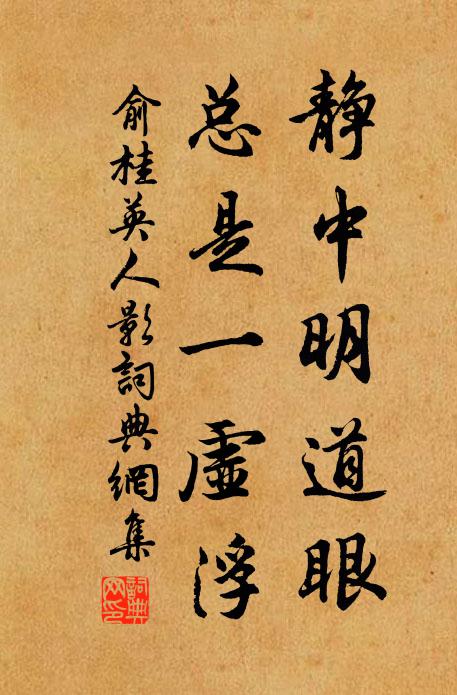 静中明道眼
总是一虚浮
俞桂英人影詞典網集
詞典网印